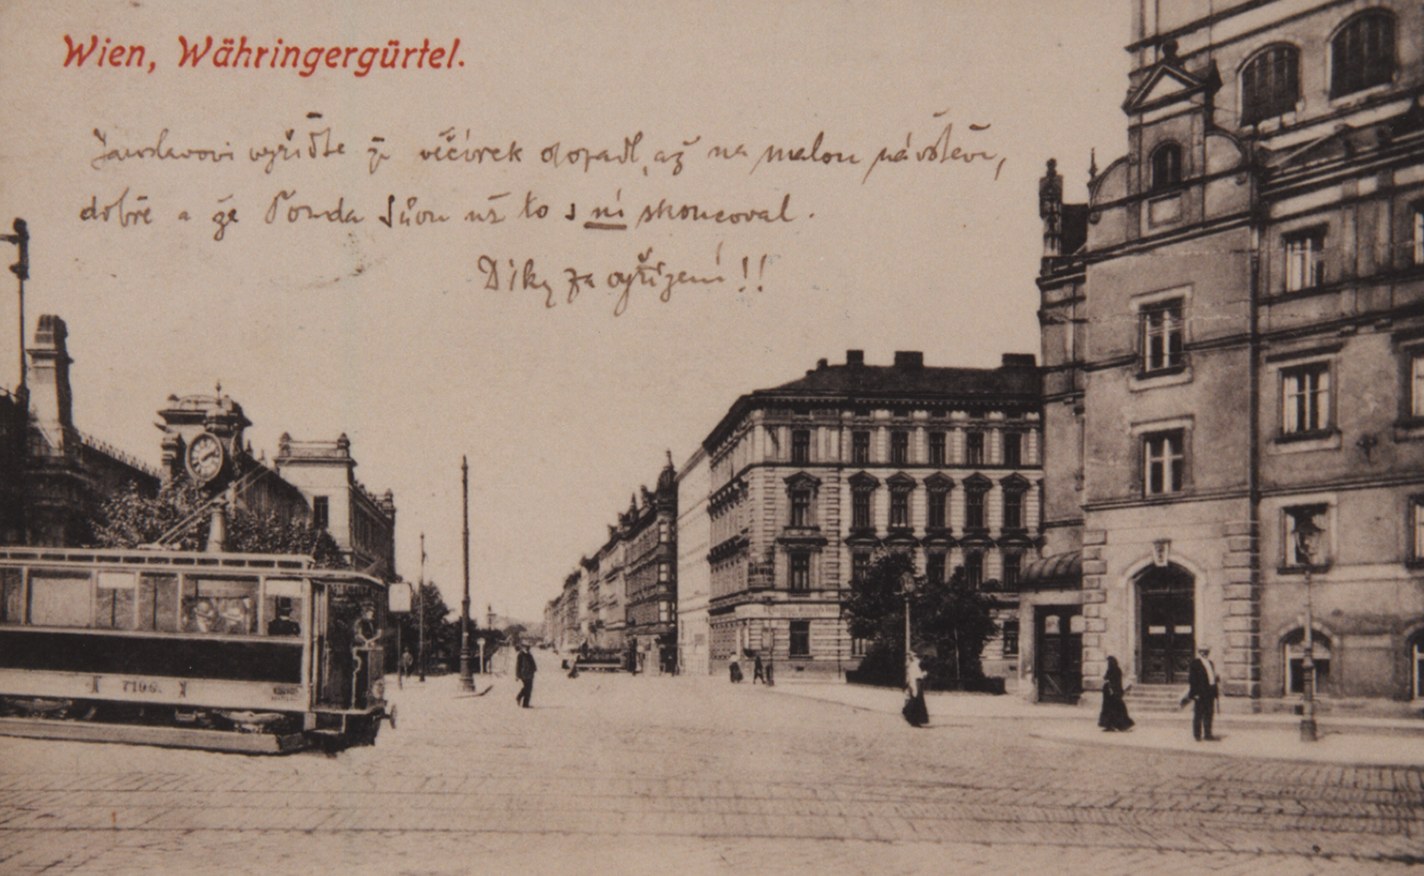 Wien, Währingergürtel.
Jaroslavovi vyřiďte že věčírek dopadl, až na malou návštěvu,
dobře a že Ponda už to s ní skoncoval.
Díky za vyřízení!!
7100.